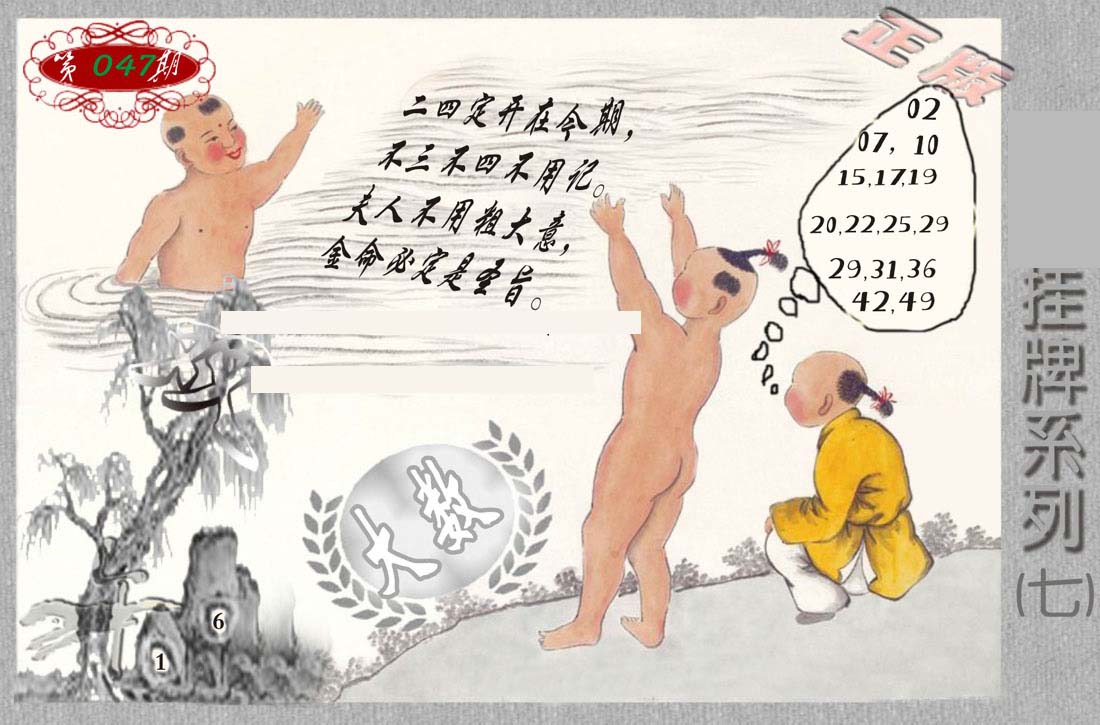 第047期
正版
二四定开在今期，
不三不四不用记。
夫人不用粗大意，
金命必定是圣旨。
02
07, 10
15,17,19
20,22,25,29
29,31,36
42,49
大数
6
1
挂牌系列(七)